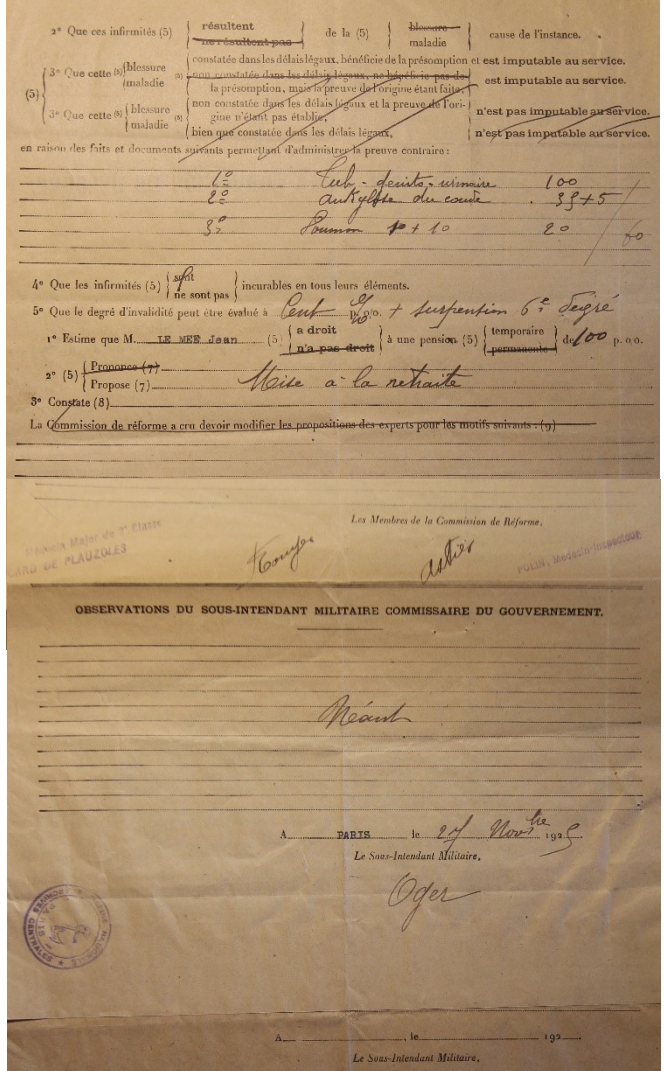 2º Que ces infirmités (5) { résultent / ne résultent pas } de la (5) { blessure / maladie } cause de l'instance.
(5) { 3º Que cette (5) { blessure / maladie (5) { constatée dans les délais légaux, bénéficie de la présomption et est imputable au service.
non constatée dans les délais légaux, ne bénéficie pas de
la présomption, mais la preuve de l'origine étant faite, est imputable au service.
3º Que cette (5) { blessure / maladie (5) { non constatée dans les délais légaux et la preuve de l'ori-
gine n'étant pas établie, n'est pas imputable au service.
bien que constatée dans les délais légaux, n'est pas imputable au service.
en raison des faits et documents suivants permettant d'administrer la preuve contraire :
1º Tub - génito - urinaire 100
2º ankylose du coude . 35 + 5
3º Poumon 10 + 10 20 60
4º Que les infirmités (5) { sont / ne sont pas } incurables en tous leurs éléments.
5º Que le degré d'invalidité peut être évalué à Cent % p. o/o. + suspention 6e degré
1º Estime que M. LE MEE Jean (5) { a droit / n'a pas droit } à une pension (5) { temporaire / permanente } de 100 p. o.o.
2º (5) { Prononce (7) / Propose (7) Mise à la retraite
3º Constate (8)
La Commission de réforme a cru devoir modifier les propositions des experts pour les motifs suivants : (9)
Les Membres de la Commission de Réforme,
Médecin Major de
DE PLAUZOLES
POLIN, Médecin-Inspecteur
OBSERVATIONS DU SOUS-INTENDANT MILITAIRE COMMISSAIRE DU GOUVERNEMENT.
Néant
A PARIS le 27 Novbre 1925
Le Sous-Intendant Militaire,
Oger
A , le 192
Le Sous-Intendant Militaire,